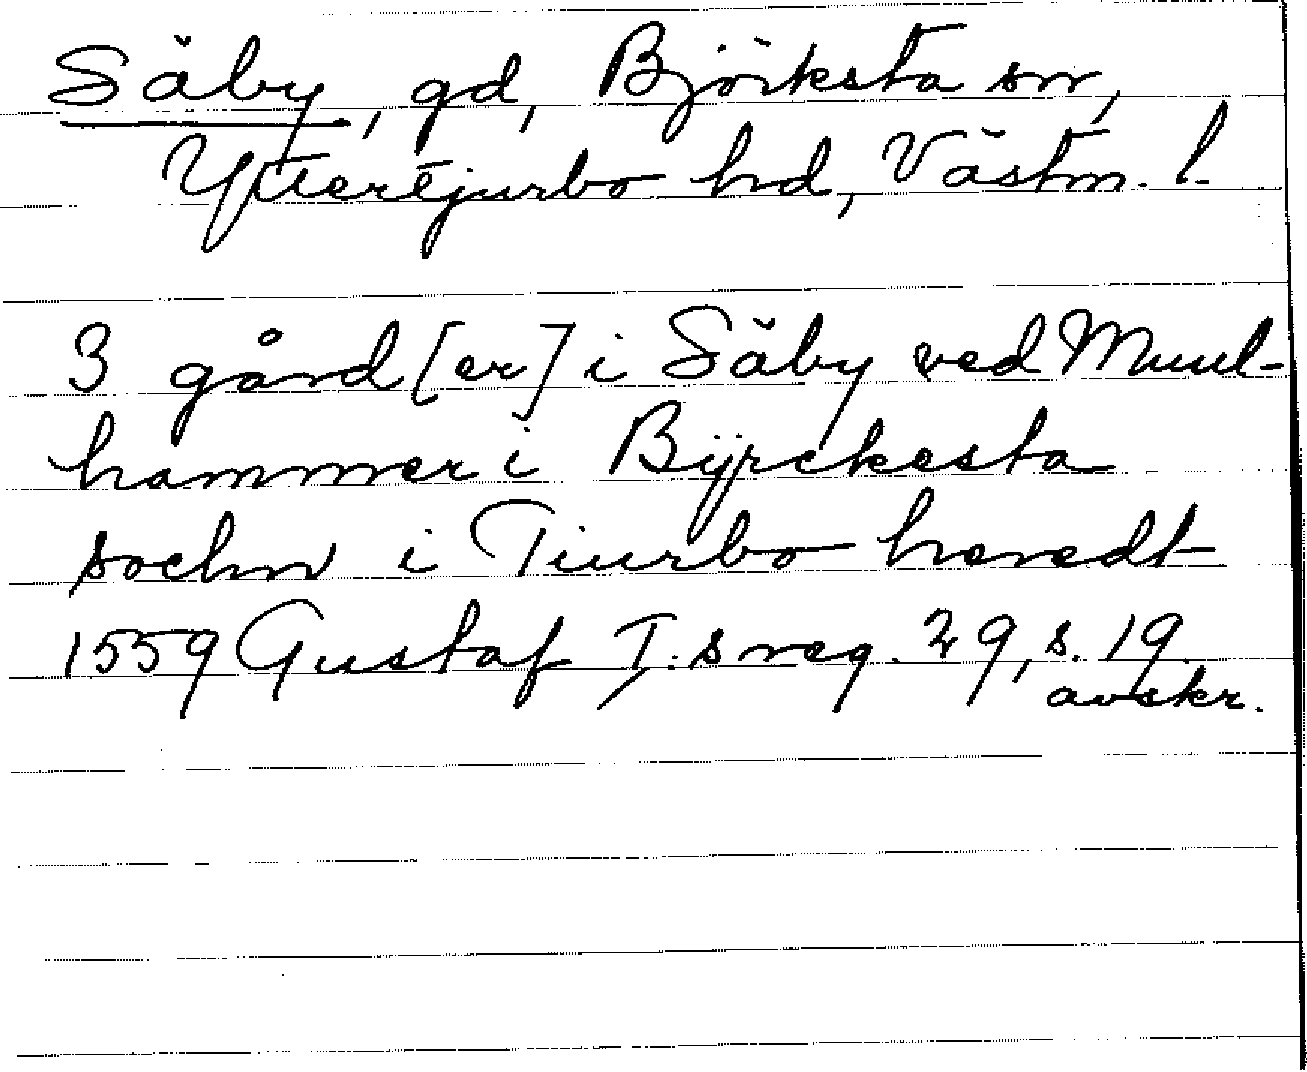 Säby, gd, Björksta sn,
Yttertjurbo hd, Västm. l.
3 gård[er] i Säby ved Muul-
hammer i Byrckesta
sochn i Tiurbo heredt
1559 Gustaf I:s reg. 29, s. 19
avskr.